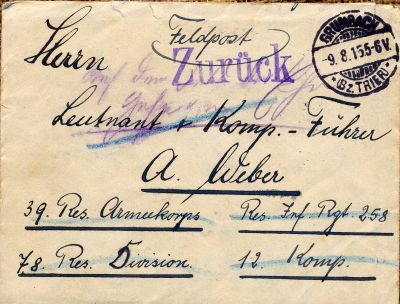 Feldpost
Herrn
Zurück
GRUMBACH
-9.8.15.5-6V.
(BZ TRIER)
Auf dem
Leutnant & Komp.-Führer
A. Weber
39. Res. Armeekorps Res. Inf. Rgt. 258
78. Res. Division. 12. Komp.